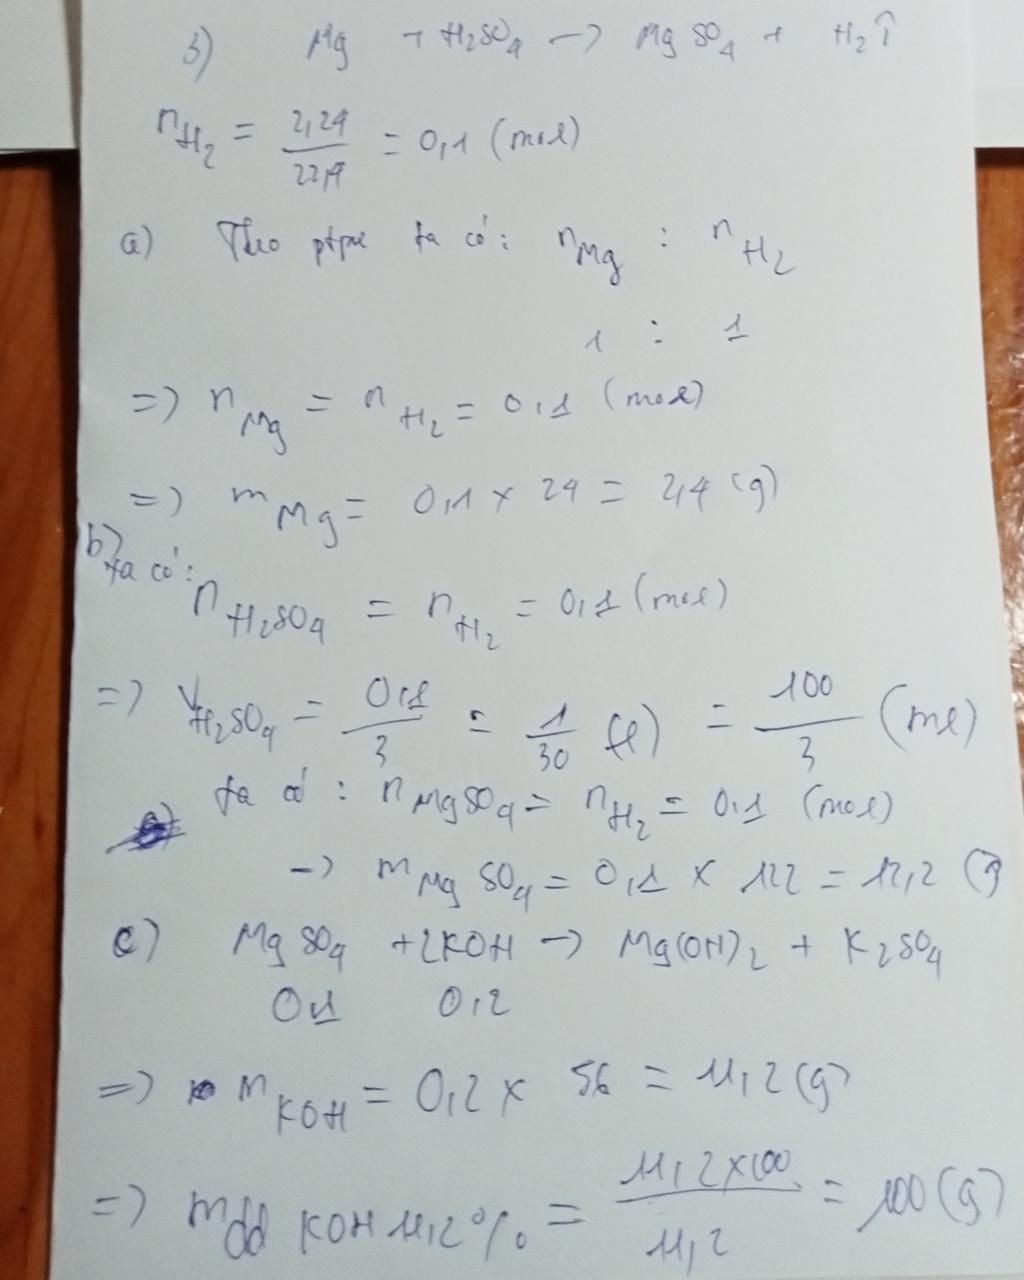 3) Mg + H₂SO₄ → MgSO₄ + H₂↑
nH₂ = 2,24/22,4 = 0,1 (mol)
a) Theo ptpư ta có: nMg : nH₂
1 : 1
=> nMg = nH₂ = 0,1 (mol)
=> mMg = 0,1 x 24 = 2,4 (g)
b) ta có:
nH₂SO₄ = nH₂ = 0,1 (mol)
=> VH₂SO₄ = 0,1/3 = 1/30 (l) = 100/3 (ml)
ta có : nMgSO₄ = nH₂ = 0,1 (mol)
-> mMgSO₄ = 0,1 x 122 = 12,2 (g)
c) MgSO₄ + 2KOH → Mg(OH)₂ + K₂SO₄
0,1 0,2
=> mKOH = 0,2 x 56 = 11,2 (g)
=> mdd KOH 11,2% = 11,2x100/11,2 = 100 (g)